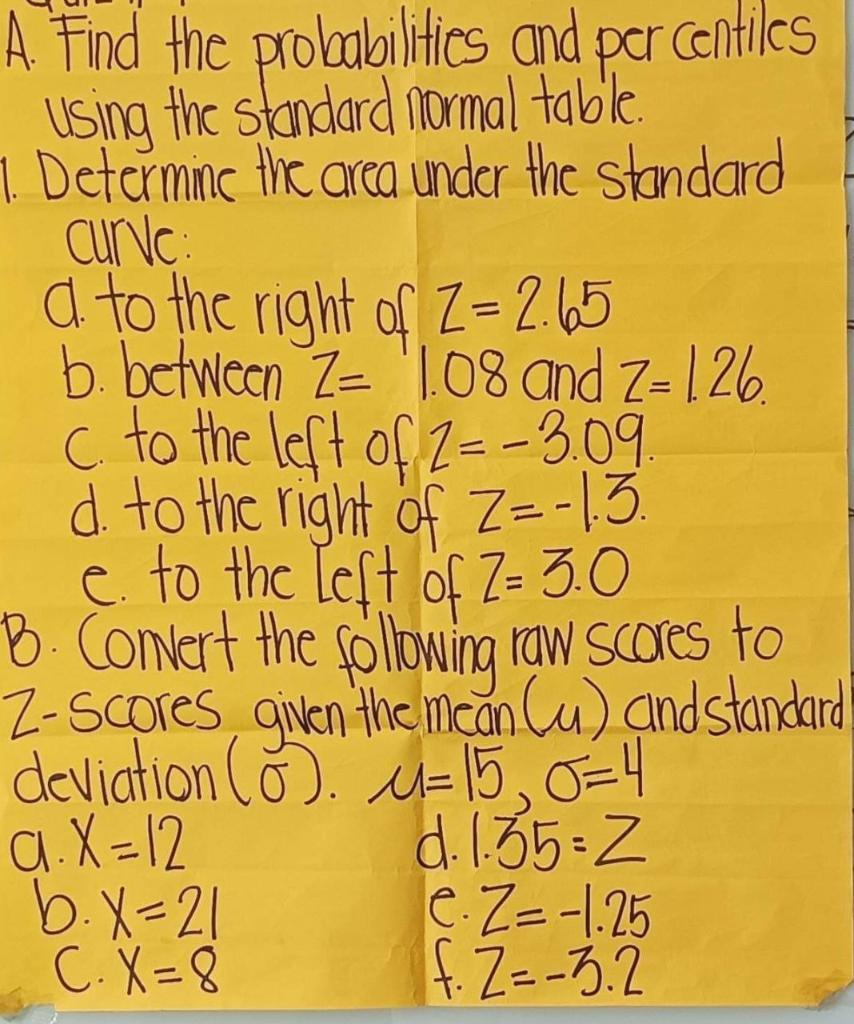 A. Find the probabilities and percentiles
using the standard normal table.
1. Determine the area under the standard
curve:
a. to the right of Z = 2.65
b. between Z = 1.08 and Z = 1.26.
c. to the left of Z = -3.09.
d. to the right of Z = -1.3.
e. to the left of Z = 3.0
B. Convert the following raw scores to
Z-scores given the mean (μ) and standard
deviation (σ). μ = 15, σ = 4
a. X = 12
b. X = 21
c. X = 8
d. 1.35 = Z
e. Z = -1.25
f. Z = -3.2